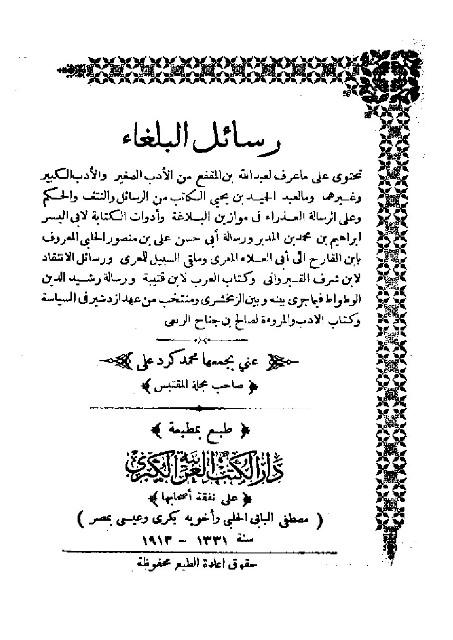 رسائل البلغاء
تحتوى على ما عرف لعبد الله بن المقفع من الأدب الصغير والأدب الكبير
وغيرهما وما لعبد الحميد بن يحيى الكاتب من الرسائل والنتف والحكم
وعلى الرسالة العذراء فى موازين البلاغة وأدوات الكتابة لابى اليسر
ابراهيم بن محمد بن المدبر ورسالة أبى حسن على بن منصور الحلبى المعروف
بابن القارح الى أبى العلاء المعرى وملقى السبيل للمعرى ورسائل الانتقاد
لابن شرف القيروانى وكتاب العرب لابن قتيبة ورسالة رشيد الدين
الوطواط فيما جرى بينه وبين الزمخشرى ومنتخب من عهد ازدشير فى السياسة
وكتاب الادب والمروءة لصالح بن جناح الربعى
عنى بجمعها محمد كرد على
﴿ صاحب مجلة المقتبس ﴾
﴿ طبع بمطبعة ﴾
دار الكتب العربية الكبرى
﴿ على نفقة أصحابها ﴾
( مصطفى البابى الحلبى وأخويه بكرى وعيسى بمصر )
سنة ١٣٣١ – ١٩١٣
حقوق اعادة الطبع محفوظة